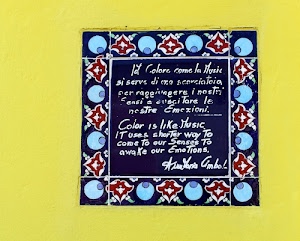 Il Colore come la Music
si serve di una scorciatoia
per raggiungere i nostri
Sensi e suscitare le
nostre Emozioni.
Color is like Music
IT uses shorter way To
come to our Senses To
awake our Emotions.